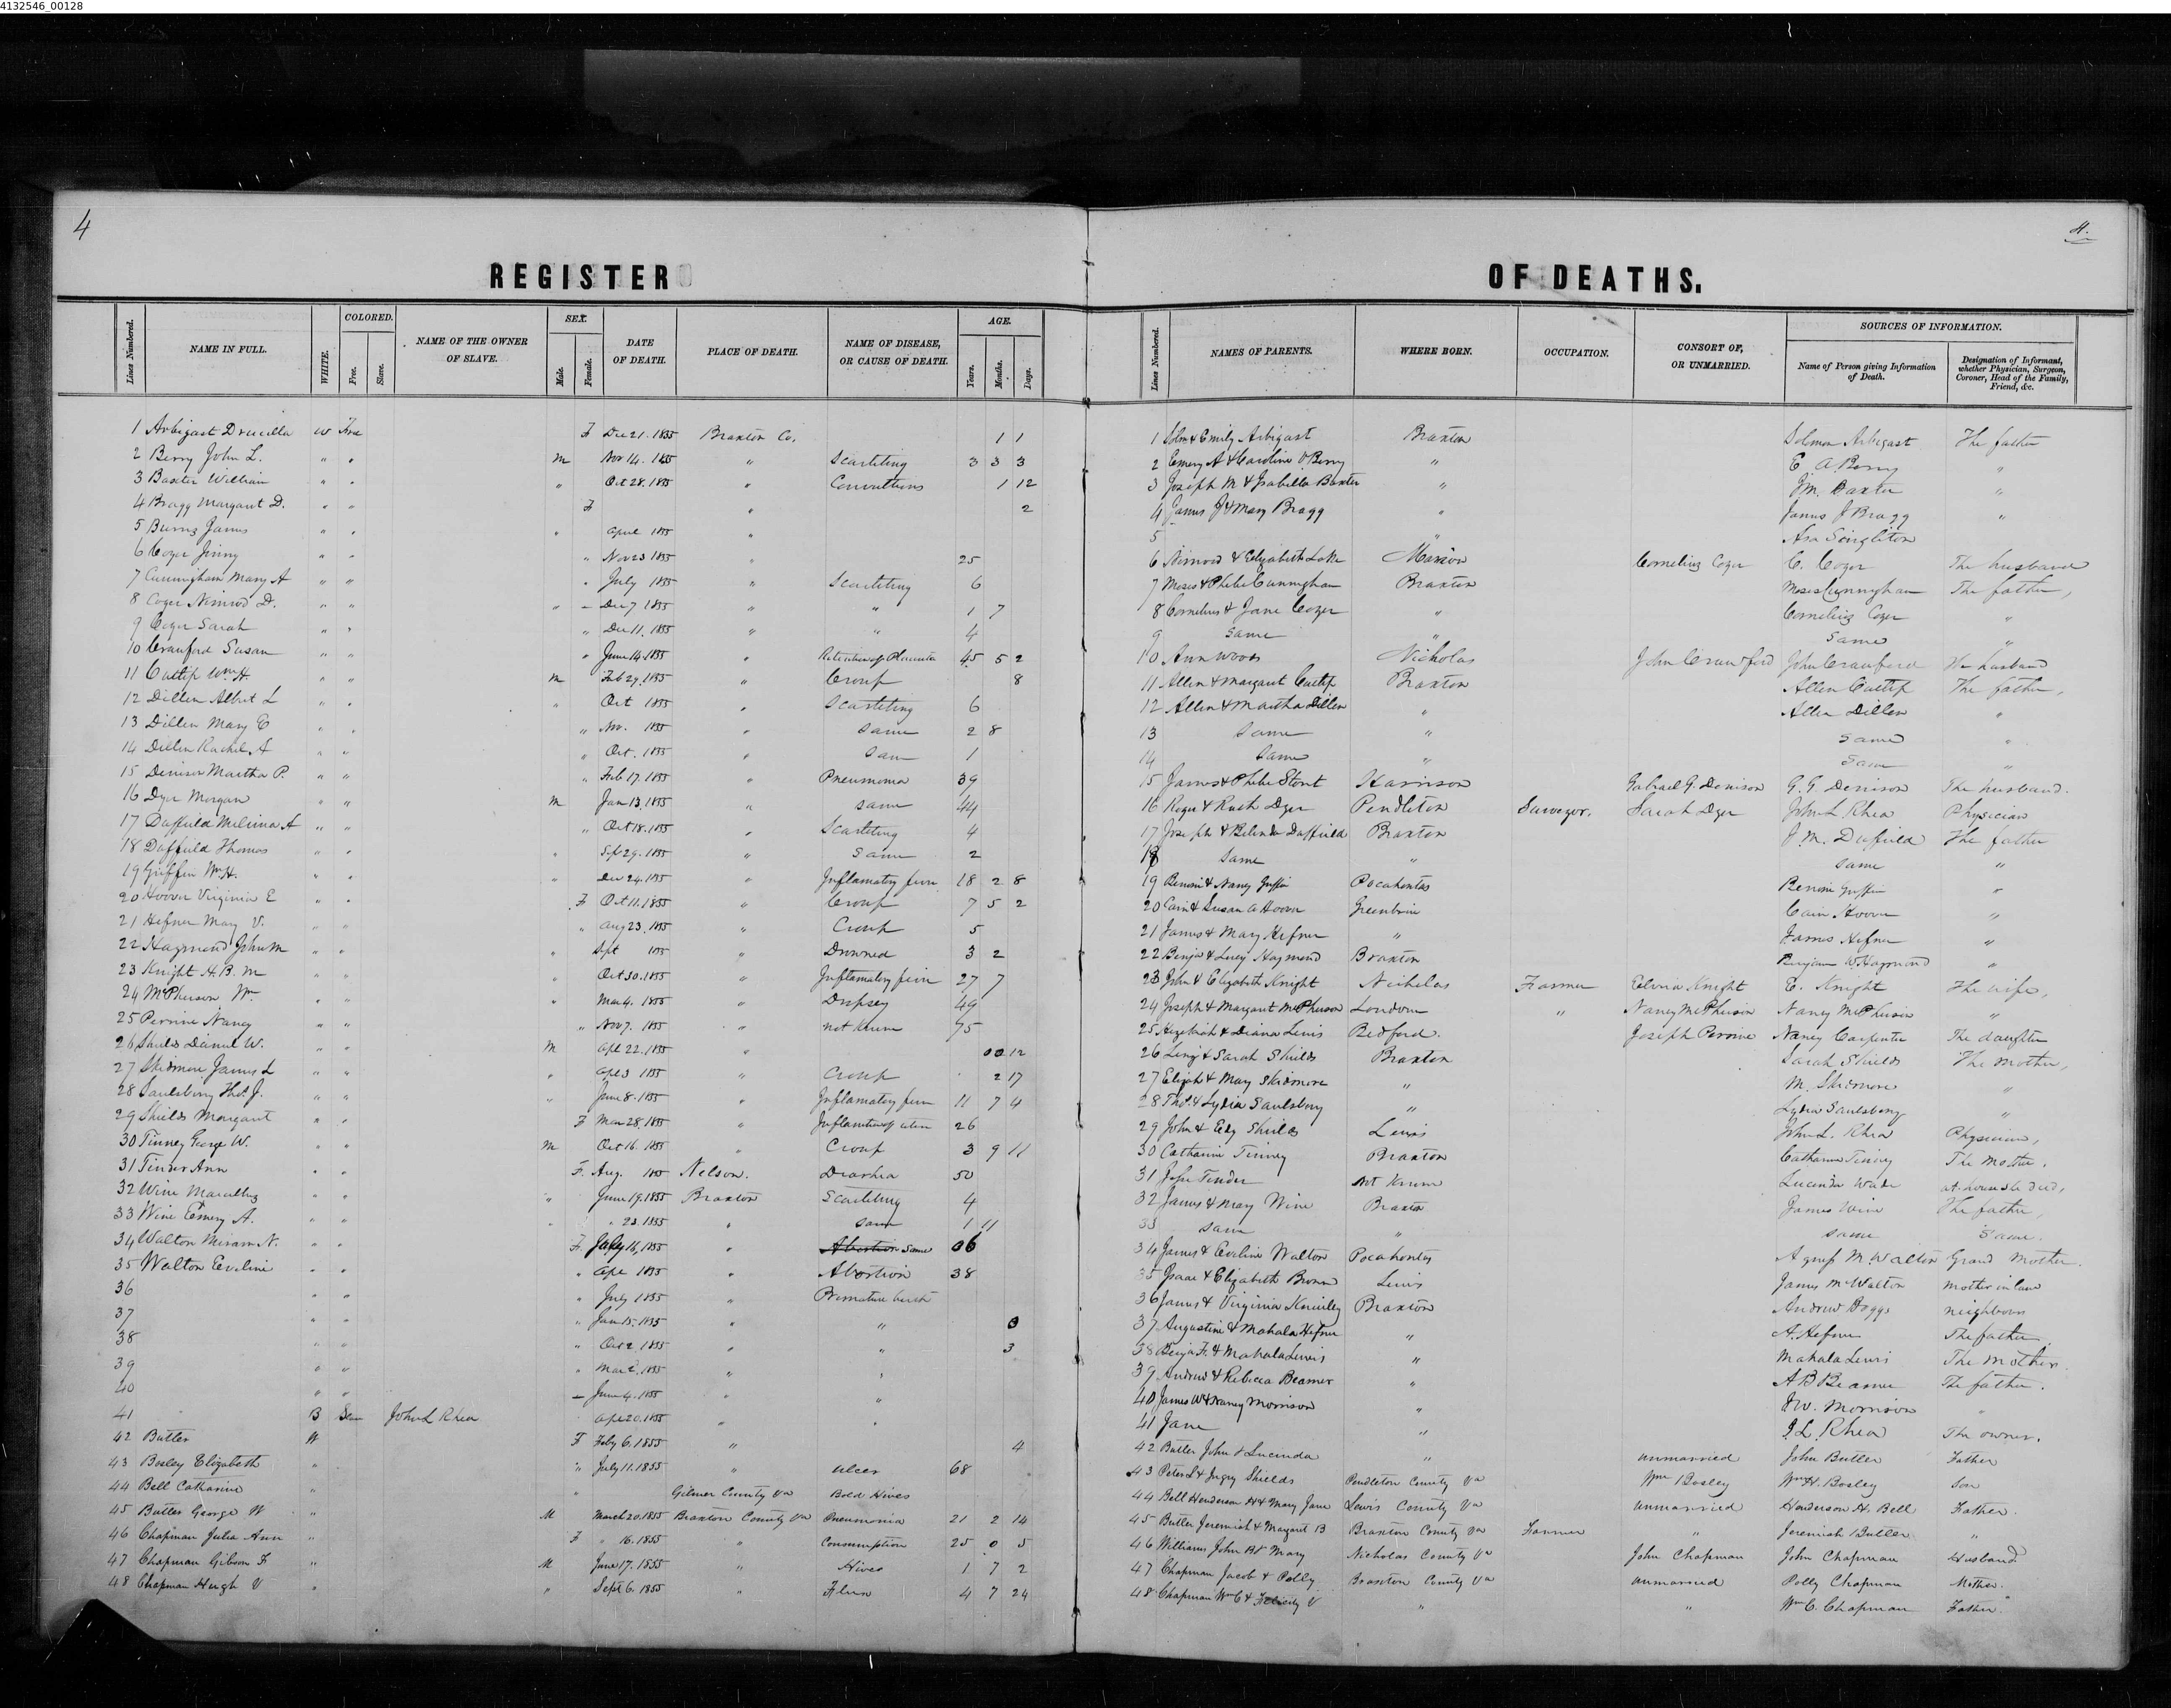 4132546_00128
4
4.
REGISTER OF DEATHS.
Lines Numbered. NAME IN FULL. WHITE. COLORED. Free. Slave. NAME OF THE OWNER OF SLAVE. SEX. Male. Female. DATE OF DEATH. PLACE OF DEATH. NAME OF DISEASE, OR CAUSE OF DEATH. AGE. Years. Months. Days. Lines Numbered. NAMES OF PARENTS. WHERE BORN. OCCUPATION. CONSORT OF, OR UNMARRIED. SOURCES OF INFORMATION. Name of Person giving Information of Death. Designation of Informant, whether Physician, Surgeon, Coroner, Head of the Family, Friend, &c.
1 Arbigast Drucilla W Free F Dec 21. 1855 Braxton Co. 1 1 1 Solm & Emily Arbigast Braxton Solomon Arbegast The father
2 Berry John L. " " M Nov 14. 1855 " Scarliting 3 3 3 2 Emery A & Caroline V Berry " E A Berry "
3 Baxter William " " " Oct 28. 1855 " Convultions 1 12 3 Joseph M & Isabella Baxter " J M. Baxter "
4 Bragg Margaret D. " " F " 2 4 James J & Mary Bragg " James J Bragg "
5 Burns James " " " April 1855 " 5 " Asa Singleton
6 Coger Jinny " " " Nov 23 1855 " 25 6 Nimrod & Elizabeth Loke Marion Cornelius Coger C. Coger The husband
7 Cunningham Mary A " " " July 1855 " Scarliting 6 7 Moses & Phebe Cunningham Braxton Moses Cunningham The father,
8 Coger Nimrod D. " " " Dec 7 1855 " " 1 7 8 Cornelius & Jane Coger " Cornelius Coger "
9 Coger Sarah " " " Dec 11. 1855 " " 4 9 Same " Same "
10 Crawford Susan " " " June 14. 1855 " Retention of Placenta 45 5 2 10 Ann Woods Nicholas John Crawford John Crawford The husband
11 Cutlip Wm H. " " M Feb 29. 1855 " Croup 8 11 Allen & Margaret Cutlip Braxton Allen Cutlip The father,
12 Dillen Albert L " " " Oct 1855 " Scarliting 6 12 Allen & Martha Dillen " Allen Dillen "
13 Dillen Mary E " " " Nov. 1855 " Same 2 8 13 Same " Same "
14 Dillen Rachel A " " " Oct. 1855 " Sam 1 14 Same " Same "
15 Denison Martha P. " " " Feb 17. 1855 " Pneumonia 39 15 James & Phebe Stout Harrison Gabrael G. Denison G. G. Denison The husband.
16 Dyer Morgan " " M Jan 13, 1855 " same 44 16 Roger & Ruth Dyer Pendleton Surveyor. Sarah Dyer John L Rhea Physician
17 Duffield Melvina A " " " Oct 18. 1855 " Scarliting 4 17 Joseph & Belinda Duffield Braxton J. M. Duffield The father
18 Duffield Thomas " " " Sept 29. 1855 " Same 2 18 Same " same "
19 Griffin Wm H. " " " Dec 24. 1855 " Inflamatory fever 18 2 8 19 Benoni & Nancy Griffin Pocahontas Benoni Griffin "
20 Hoover Virginia E " " F Oct 11. 1855 " Croup 7 5 2 20 Cain & Susan A Hoover Greenbrier Cain Hoover "
21 Hefner Mary V. " " " Aug 23. 1855 " Croup 5 21 James & Mary Hefner " James Hefner "
22 Haymond John M " " " Sept 1855 " Drowned 3 2 22 Benja & Lucy Haymond Braxton Benjamin W. Haymond "
23 Knight H. B. M " " " Oct 30. 1855 " Inflamatory fever 27 7 23 John & Elizabeth Knight Nicholas Farmer Elvira Knight E. Knight The wife,
24 McPherson Wm " " " Mar 4. 1855 " Dropsey 49 24 Joseph & Margaret McPherson Loudoun " Nancy McPherson Nancy McPherson "
25 Perrine Nancy " " " Nov 7. 1855 " not known 75 25 Hezekiah & Diana Lewis Bedford. Joseph Perrine Nancy Carpenter The daughter
26 Shields Daniel W. " " M Apl 22. 1855 " 00 12 26 Levy & Sarah Shields Braxton Sarah Shields The Mother,
27 Skidmore James L " " " Apl 3 1855 " Croup 2 17 27 Elijah & Mary Skidmore " M. Skidmore "
28 Saulsbery Thos. J. " " " June 8. 1855 " Inflamatory fever 11 7 4 28 Thos. & Lydia Saulsbery " Lydia Saulsbery "
29 Shields Margaret " " F Mar 28. 1855 " Inflamation of 26 29 John & Edy Shields Lewis John L. Rhea Physician,
30 Tinney George W. " " M Oct 16. 1855 " Croup 3 9 11 30 Catharine Tinney Braxton Catharine Tinney The Mother,
31 Tinder Ann " " F. Aug. 1855 Nelson. Diarhea 50 31 Jesse Tinder Not Known Lucinda Wade at house he died,
32 Wine Marcellus " " " June 19. 1855 Braxton Scarliting 4 32 James & Mary Wine Braxton James Wine The father,
33 Wine Emery A. " " " 23. 1855 " same 1 11 33 same " same Same.
34 Walton Miriam N. " " F. July 16, 1855 " Abortion same 06 34 James & Eveline Walton Pocahontas Agness M. Walton Grand Mother.
35 Walton Eveline " " " Apr 1855 " Abortion 38 35 Isaac & Elizabeth Brown Lewis James M Walton Mother in law
36 " " " July 1855 " Premature birth 36 James & Virginia Braxton Andrew Boggs neighbour
37 " " " Jan 15. 1855 " " 3 37 Augustine & Mahala Hefner " A. Hefner The father
38 " " " Oct 2 1855 " " 3 38 Benja F. & Mahala Lewis " Mahala Lewis The Mother
39 " " " Mar 2. 1855 " " 39 Andrew & Rebecca Beamer " A B Beamer The father.
40 " " June 4. 1855 " " 40 James W & Nancy Morrison " J W. Morrison "
41 B Slave John L Rhea Apr 20. 1855 " " 41 Jane " J. L. Rhea The owner.
42 Butler W F Feby 6. 1855 " 4 42 Butler John & Lucinda " unmarried John Butler Father
43 Bosley Elizabeth " " July 11. 1855 " Ulcer 68 43 Peter L & Shields Pendleton County Va Wm Bosley Wm H. Bosley Son
44 Bell Catharine " " Gilmer County Va Bold Hives 44 Bell Henderson H & Mary Jane Lewis County Va unmarried Henderson H. Bell Father
45 Butler George W " M March 20. 1855 Braxton County Va Pneumonia 21 2 14 45 Butler Jeremiah & Margaret B Braxton County Va Farmer " Jeremiah Butler "
46 Chapman Julia Ann " F " 16. 1855 " Consumption 25 0 5 46 Williams John B & Mary Nicholas County Va John Chapman John Chapman Husband
47 Chapman Gibson F " M June 17. 1855 " Hives 1 7 2 47 Chapman Jacob & Polly Braxton County Va unmarried Polly Chapman Mother.
48 Chapman Hugh V " " Sept 6. 1855 " Flux 4 7 24 48 Chapman Wm C & Felicity V " " Wm C. Chapman Father.